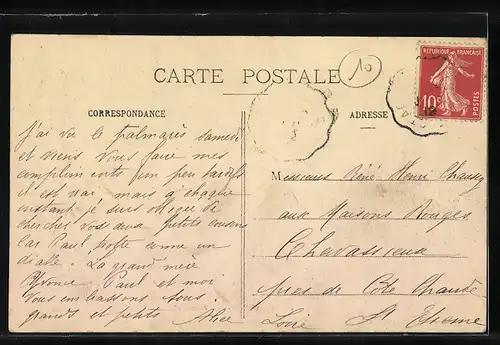 CARTE POSTALE
10
RÉPUBLIQUE FRANÇAISE
10c
POSTES
CORRESPONDANCE
ADRESSE
J'ai vu le palmarès samedi
et viens vous faire mes
compliments un peu tardifs
il est vrai, mais à chaque
instant je suis obligée de
chercher vos deux petits cousins
car Paul trotte comme un
diable. La grand mère
Yvonne Paul et moi
vous embrassons tous.
grands et petits Alice
Messieurs René Henri
aux Maisons Rouges
Chavassieux
près de Côte Chaude
Loire St Etienne